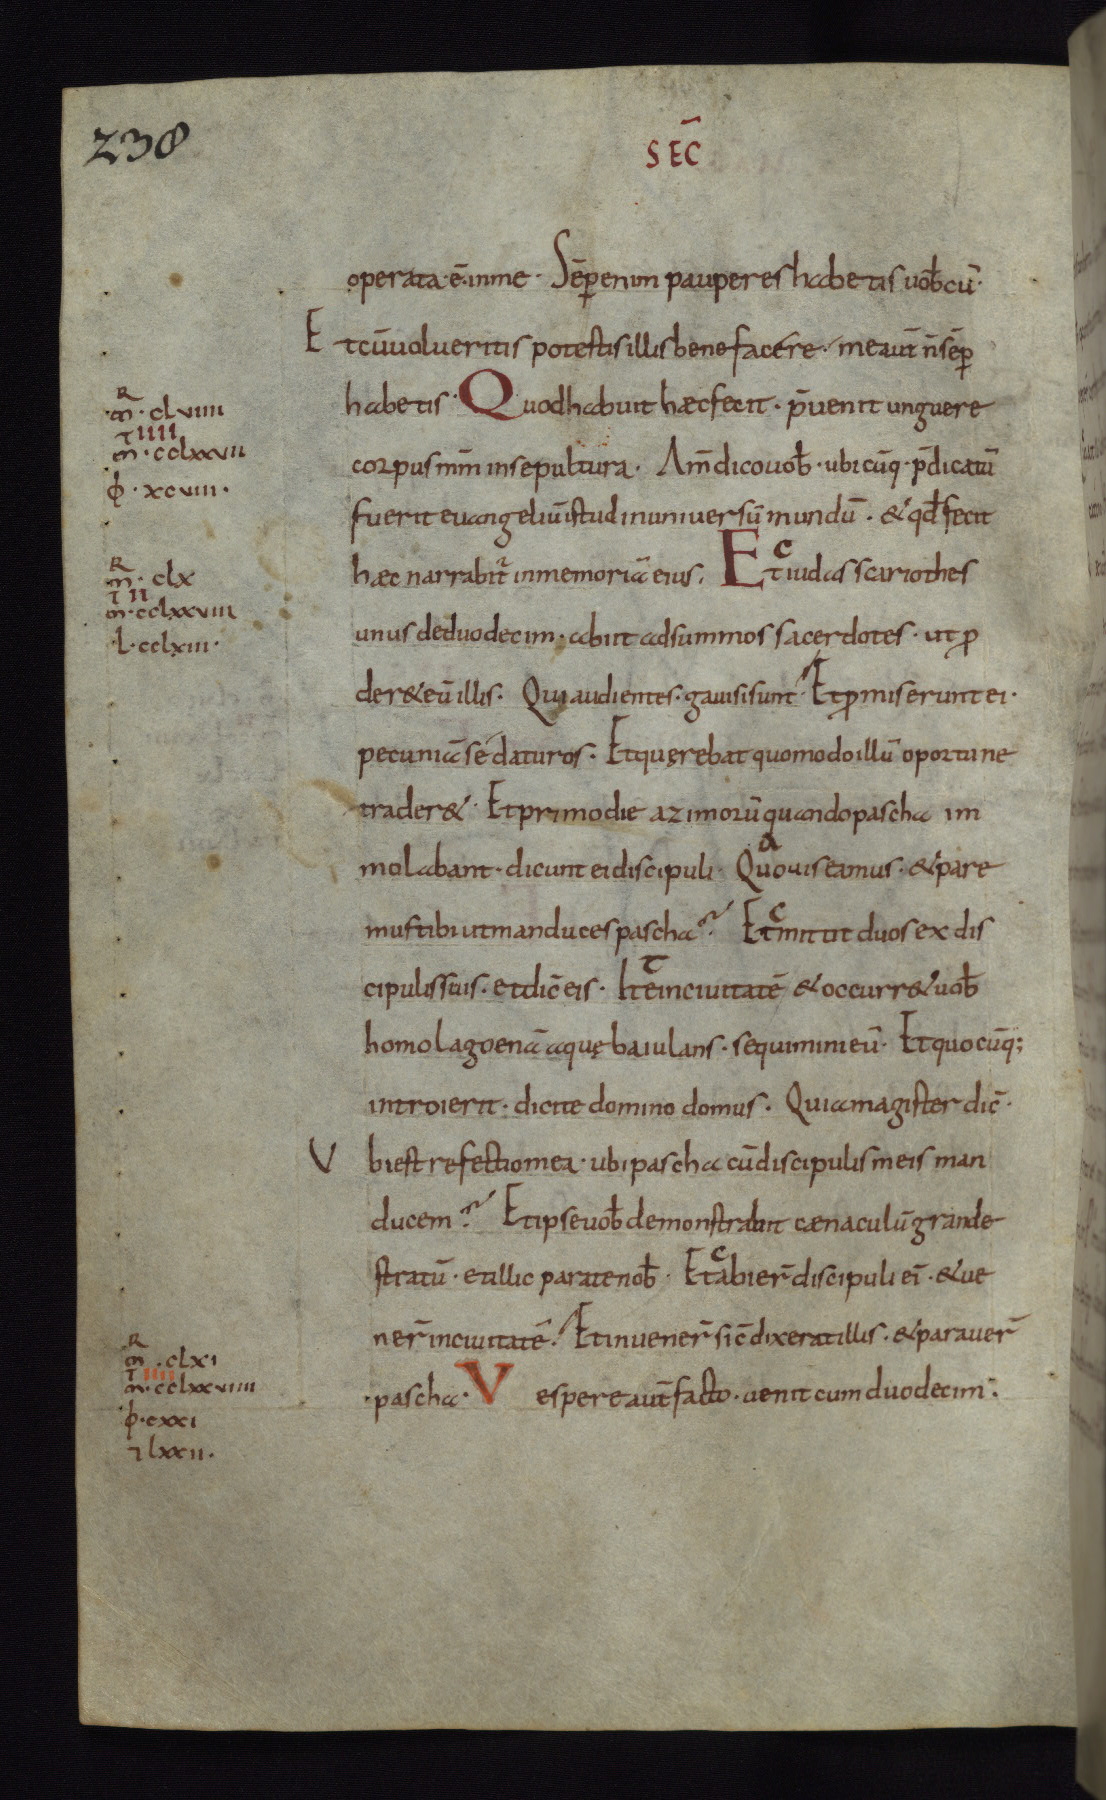 238
SEC̄
operata·ē·inme· Sēp enim pauperes habetis uob̄ cū·
Et cū uolueritis potestis illis benefacere· me aut̄ n̄ sēp
habetis· Quod habuit hæc fecit· p̄uenit unguere
corpus mm̄ in sepultura· Am̄ dico uob̄· ubicūq· p̄dicatū
fuerit euangeliū istud in uniuersū mundū· & qd̄ fecit
hæc narrabit̄ in memoriā eius. Et iudas scariothes
unus de duodecim· abiit ad summos sacerdotes· ut p
der& eū illis· Qui audientes· gauisi sunt· Et promiserunt ei·
pecuniā se daturos· Et querebat quomodo illū oportune
trader&· Et primo die azimorū quando pascha im
molabant· dicunt ei discipuli· Quo uis eamus· & pare
mus tibi ut manduces pascha? Et mittit duos ex dis
cipulis suis· et dic̄ eis· Ite in ciuitatē & occurr& uob̄
homo lagoenā aquę baiulans· sequimini eū· Et quocūq;
introierit· dicite domino domus· Quia magister dic̄·
Ubi est refectio mea· ubi pascha cū discipulis meis man
ducem? Et ipse uob̄ demonstrabit cænaculū grande
stratū· et illic parate nob̄· Et abier̄ discipuli ei· & ue
ner̄ in ciuitatē· Et inuener̄ sic̄ dixerat illis· & parauer̄
·pascha· Vespere aut̄ facto· uenit cum duodecim·
R
m· clviiii
τ iiii
m· cclxxvii
ϕ· xcviii·
R
m· clx
τ ii
m· cclxxviii
·l· cclxiii·
R
m· clxi
τ iiii
m· cclxxviiii
ϕ· cxxi
lxxii·